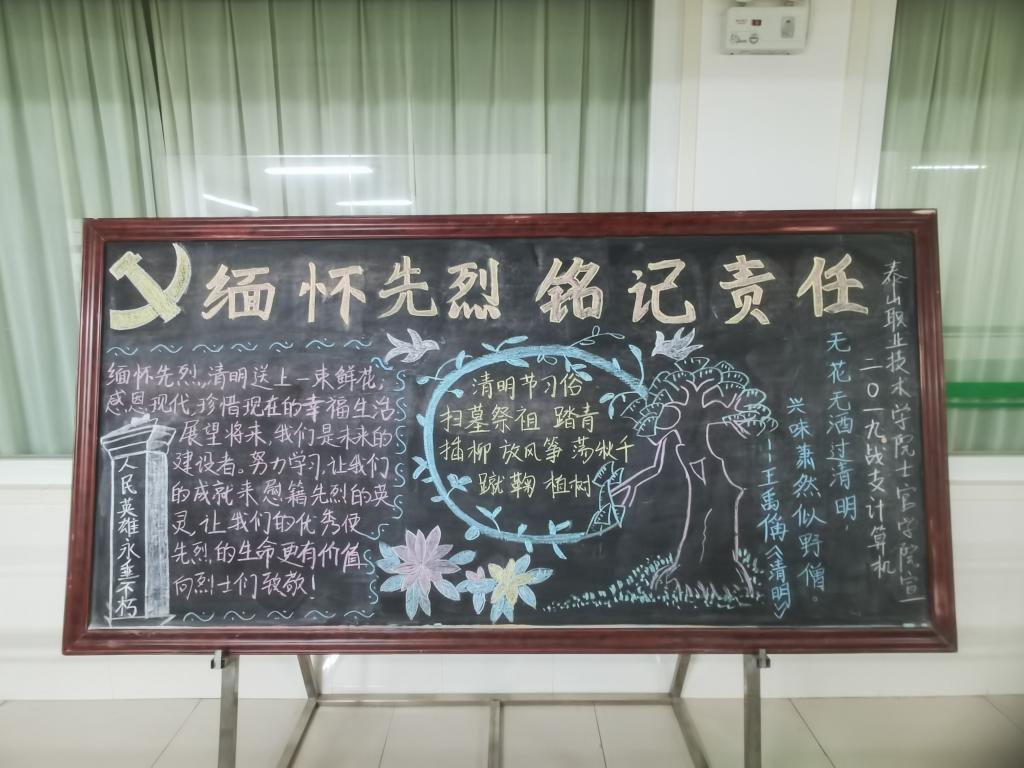 缅怀先烈 铭记责任
缅怀先烈,清明送上一束鲜花,
感恩现代,珍惜现在的幸福生活
展望将来,我们是未来的
建设者。努力学习,让我们
的成就来慰籍先烈的英
灵,让我们的优秀使
先烈的生命更有价值
向烈士们致敬!
人民英雄永垂不朽
清明节习俗
扫墓祭祖 踏青
插柳 放风筝 荡秋千
蹴鞠 植树
无花无酒过清明,
兴味萧然似野僧。
--王禹偁《清明》
泰山职业技术学院士官学院宣
二〇一九战支计算机